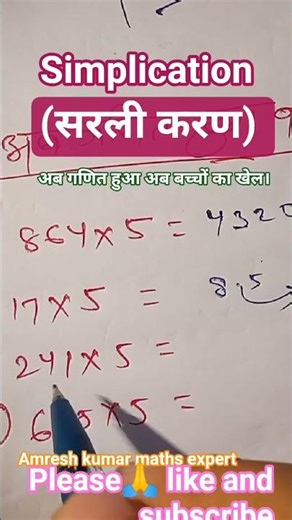 Simplication
(सरली करण)
अब गणित हुआ अब बच्चों का खेल।
864 × 5 = 4320
17 × 5 = 8.5
241 × 5 =
× 5 =
Amresh kumar maths expert
Please🙏 like and
subscribe